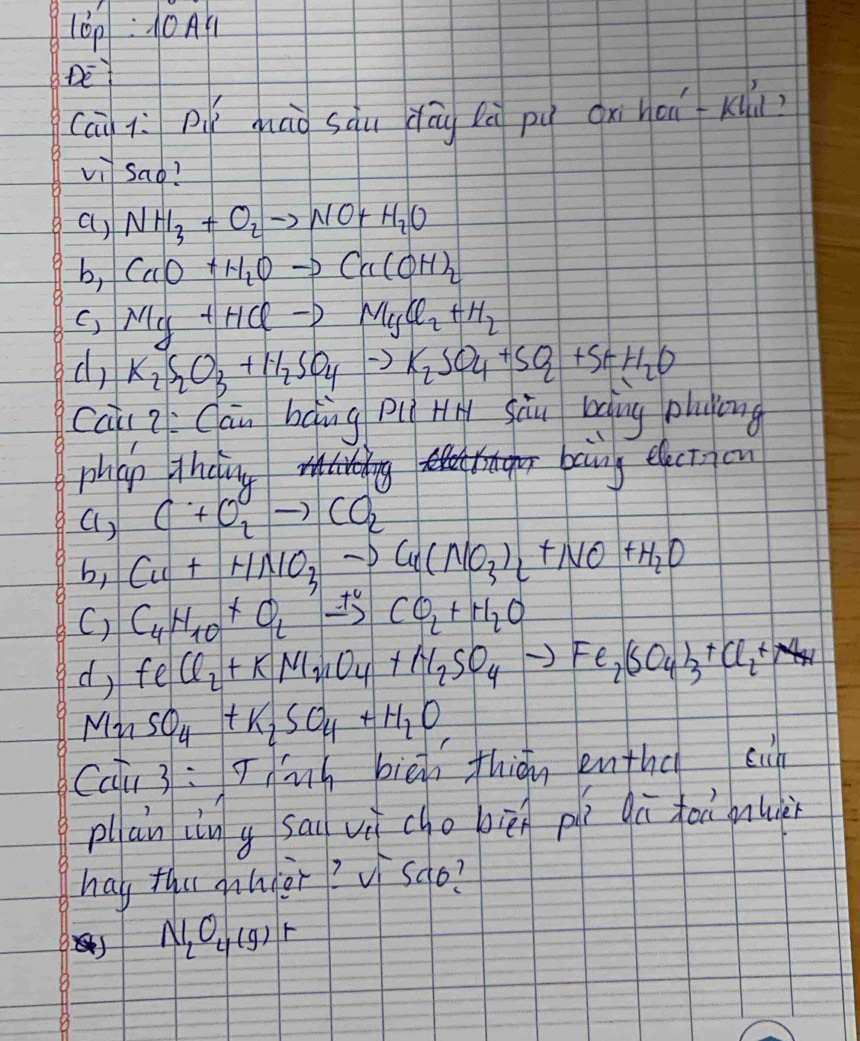 lớp : 10A4
Đề:
Câu 1: Pứ nào sau đây là pứ oxi hoá - khử?
vì sao?
a, NH₃ + O₂ → NO + H₂O
b, CaO + H₂O → Ca(OH)₂
c, Mg + HCl → MgCl₂ + H₂
d, K₂S₂O₃ + H₂SO₄ → K₂SO₄ + SO₂ + S + H₂O
Câu 2: Cân bằng PỨ HH sau bằng phương
pháp thăng bằng electron
a, C + O₂ → CO₂
b, Cu + HNO₃ → Cu(NO₃)₂ + NO + H₂O
c, C₄H₁₀ + O₂ t⁰→ CO₂ + H₂O
d, FeCl₂ + KMnO₄ + H₂SO₄ → Fe₂(SO₄)₃ + Cl₂ +
MnSO₄ + K₂SO₄ + H₂O
Câu 3: Tính biến thiên enthal của
phản ứng sau và cho biết pứ là toả nhiệt
hay thu nhiệt? vì sao?
a, N₂O₄(g) +